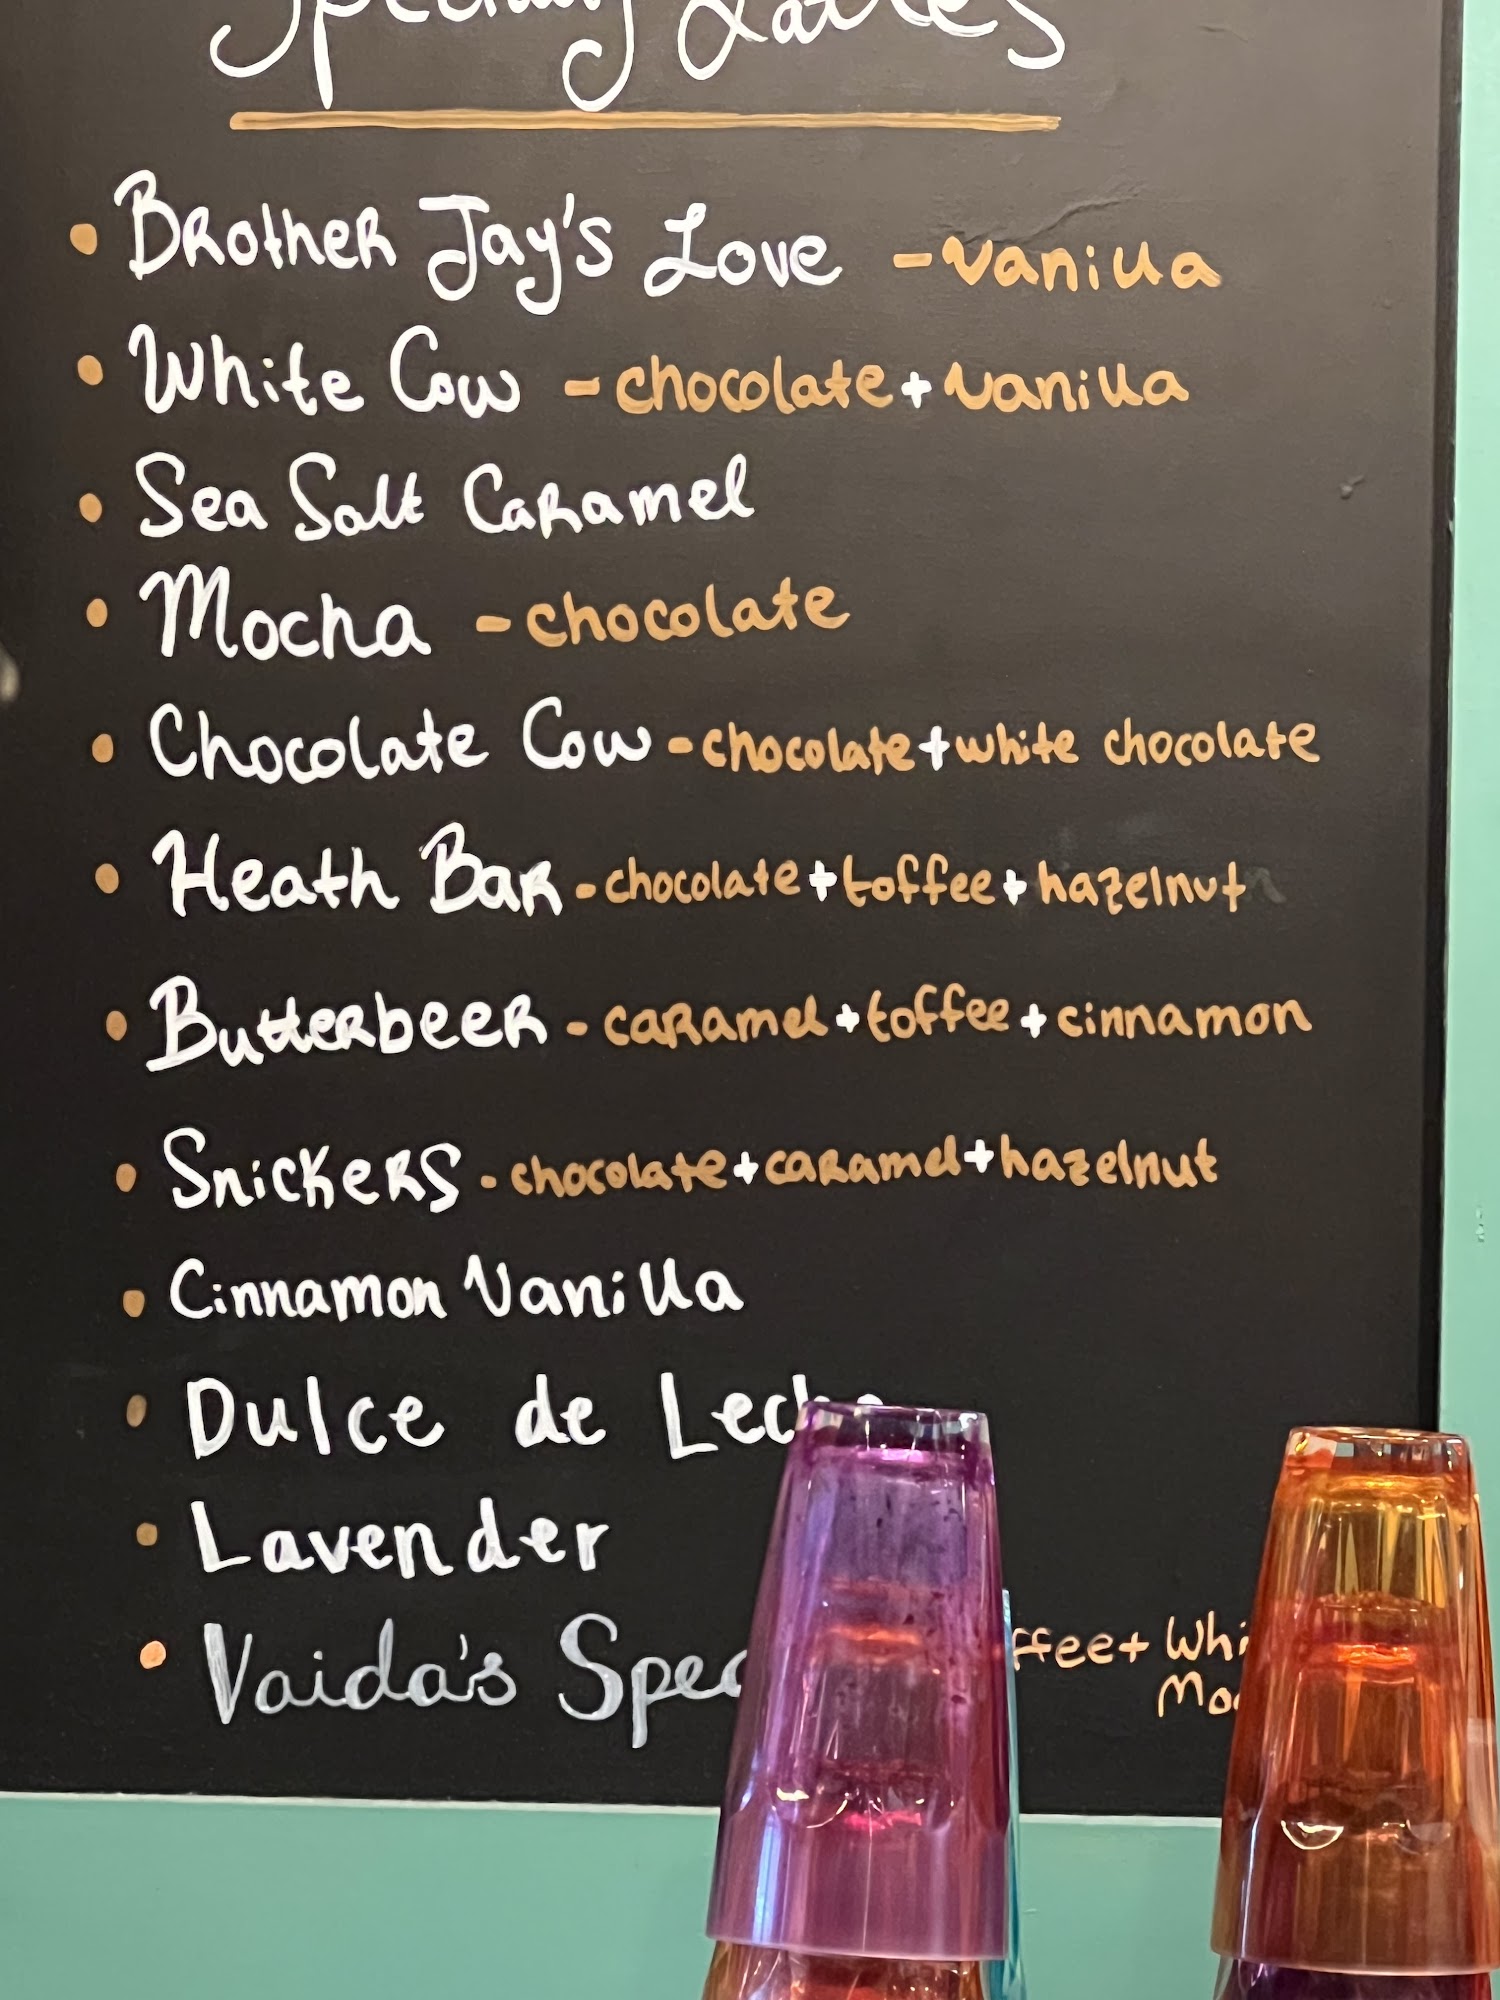 Specialty Lattes
• Brother Jay's Love - vanilla
• White Cow - chocolate + vanilla
• Sea Salt Caramel
• Mocha - chocolate
• Chocolate Cow - chocolate + white chocolate
• Heath Bar - chocolate + toffee + hazelnut
• Butterbeer - caramel + toffee + cinnamon
• Snickers - chocolate + caramel + hazelnut
• Cinnamon Vanilla
• Dulce de Leche
• Lavender
• Vaida's